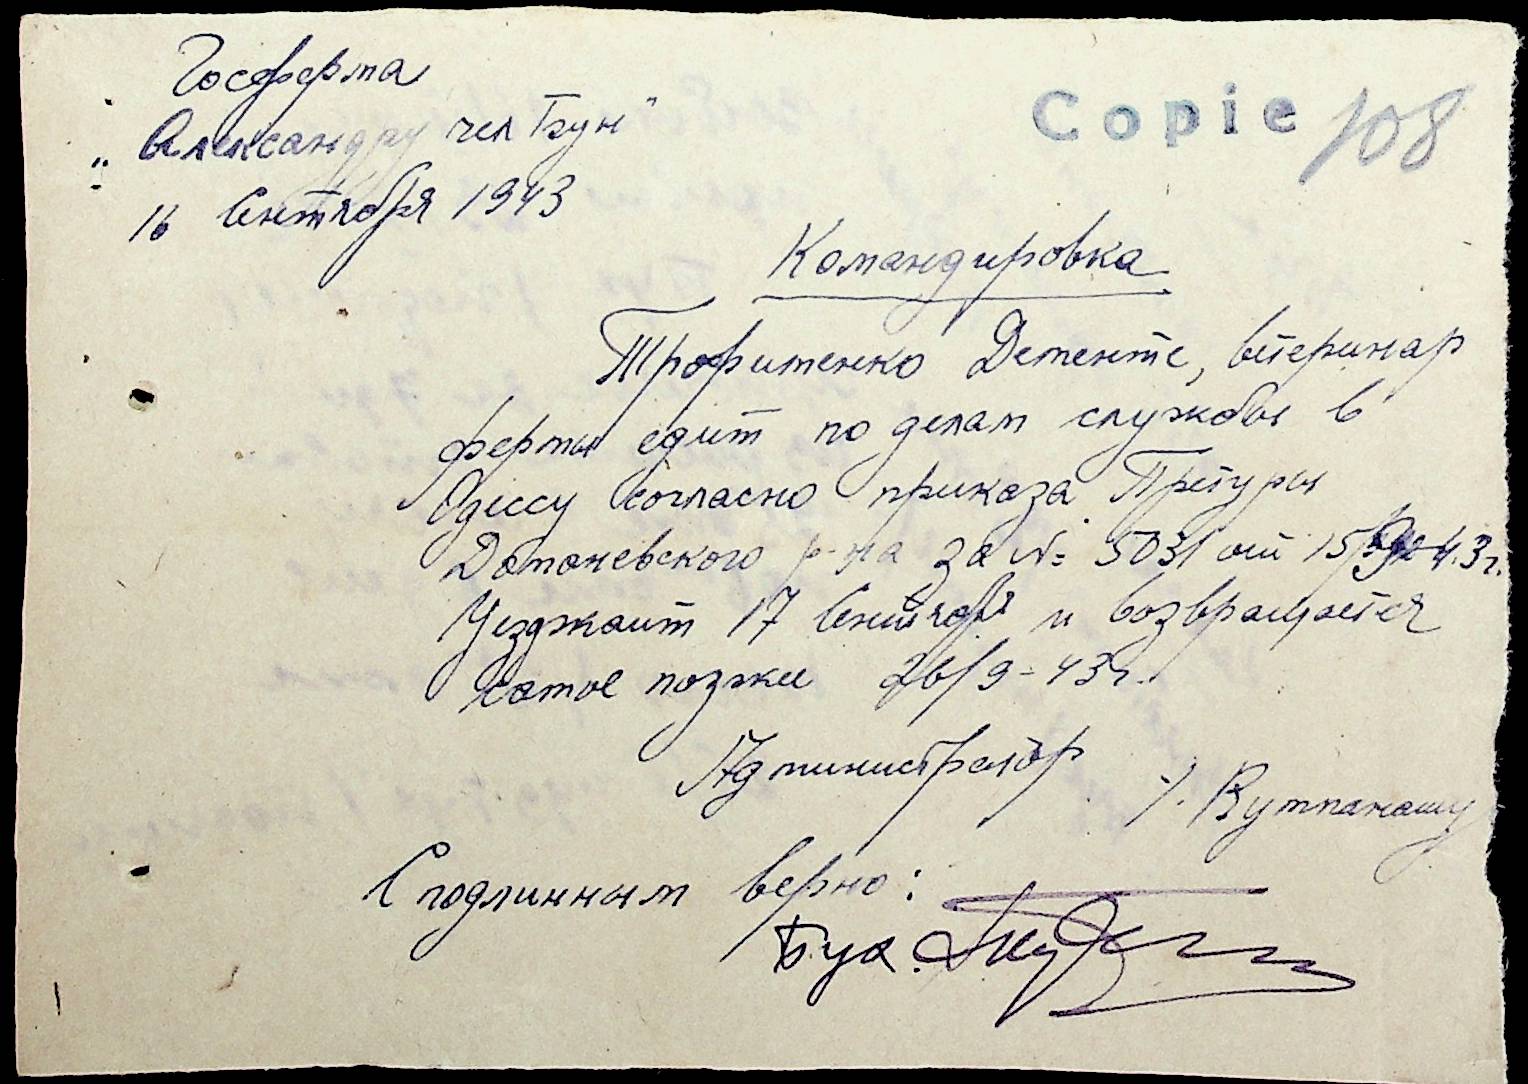 Госферма
Copie 108
„Александру чел Бун"
16 Сентября 1943
Командировка
Трофименко Дементе, ветеринар
фермы едит по делам службы в
Одессу согласно приказа Претуры
Доманевского р-на за № 5031 от 15/9-43г.
Уезджаит 17 Сентября и возвращается
самое позже 26/9-43г.
Администратор
/. Кутпанашу
С подлинным верно:
Бух.